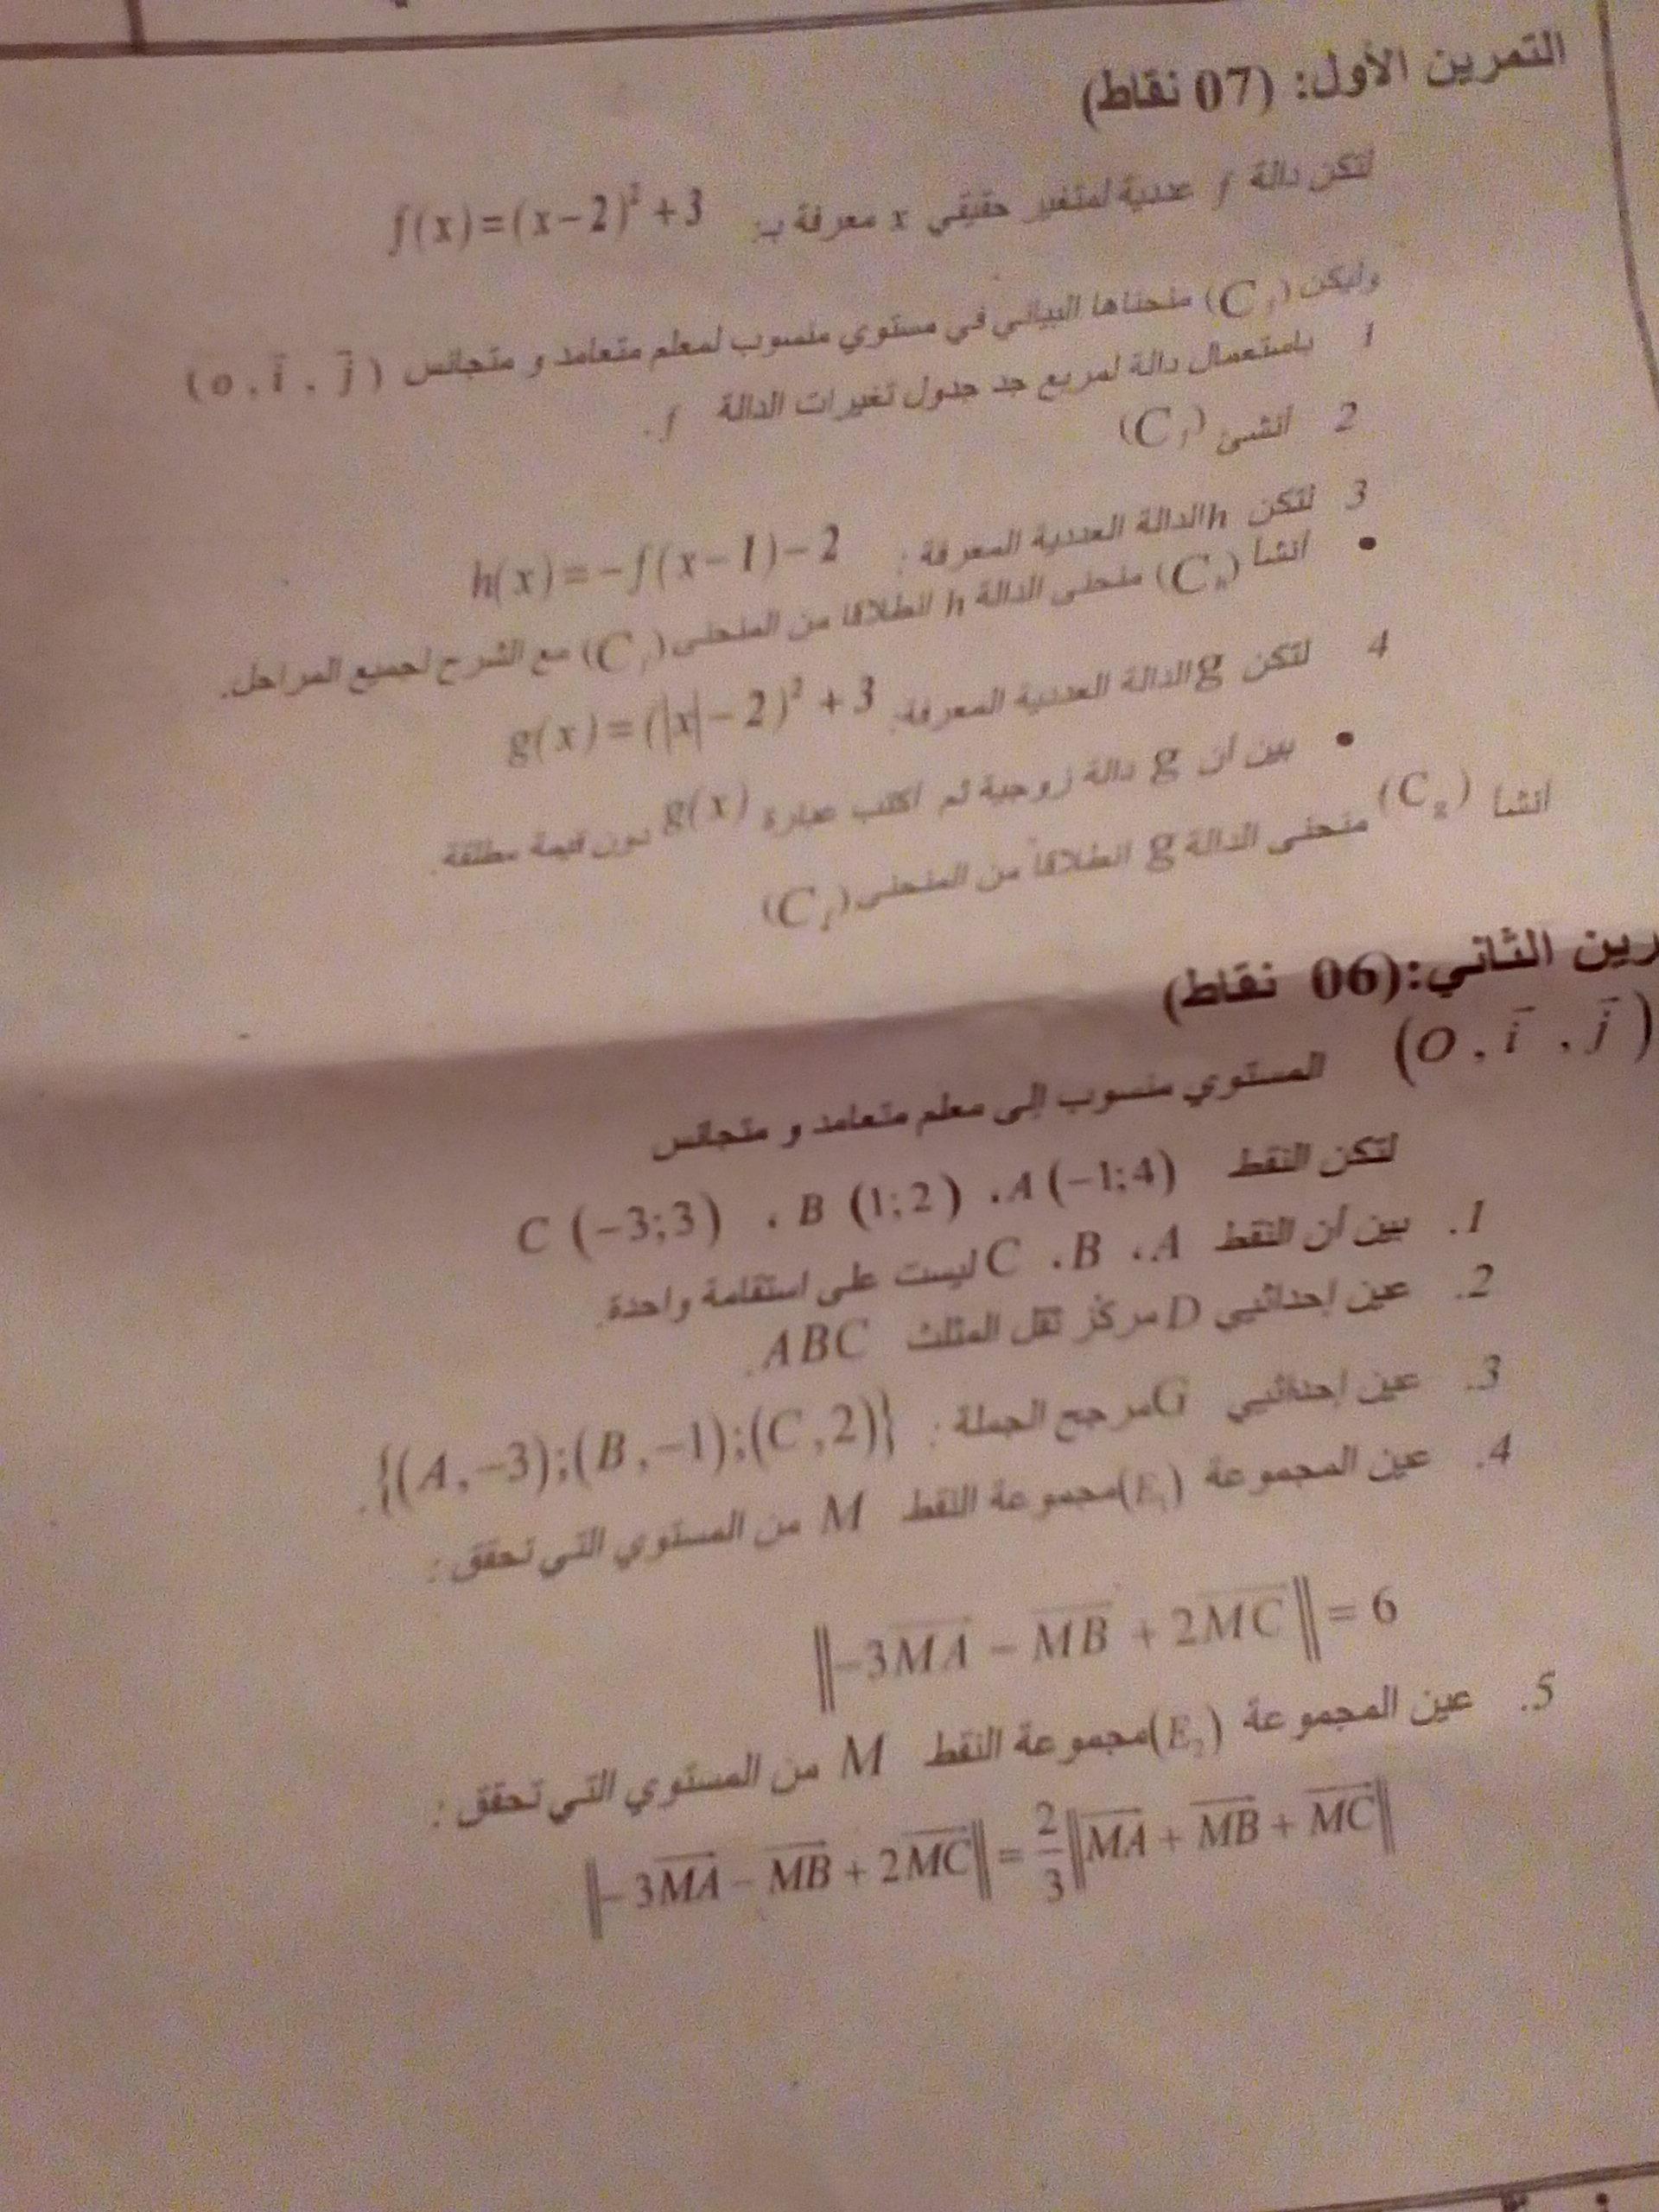 التمرين الأول: (07 نقاط)
لتكن دالة f عددية لمتغير حقيقي x معرفة بـ: f(x)=(x−2)²+3
وليكن (C_f) منحناها البياني في مستوي منسوب لمعلم متعامد و متجانس (o, i, j)
1 باستعمال دالة لمربع جد جدول تغيرات الدالة f.
2 أنشئ (C_f)
3 لتكن h الدالة العددية المعرفة : h(x)=−f(x−1)−2
• أنشأ (C_h) منحنى الدالة h انطلاقا من المنحنى (C_f) مع الشرح لجميع المراحل.
4 لتكن g الدالة العددية المعرفة: g(x)=(|x|−2)²+3
• بين أن g دالة زوجية ثم اكتب عبارة g(x) دون قيمة مطلقة.
أنشأ (C_g) منحنى الدالة g انطلاقاً من المنحنى (C_f)
رين الثاني:(06 نقاط)
المستوي منسوب إلى معلم متعامد و متجانس (O, i, j)
لتكن النقط A(−1;4)، B(1;2)، C(−3;3)
1. بين أن النقط A، B، C ليست على استقامة واحدة.
2. عين إحداثيي D مركز ثقل المثلث ABC.
3. عين إحداثيي G مرجح الجملة : {(A,−3);(B,−1);(C,2)}.
4. عين المجموعة (E₁) مجموعة النقط M من المستوي التي تحقق :
‖−3MA − MB + 2MC‖ = 6
5. عين المجموعة (E₂) مجموعة النقط M من المستوي التي تحقق :
‖−3MA − MB + 2MC‖ = 2/3 ‖MA + MB + MC‖